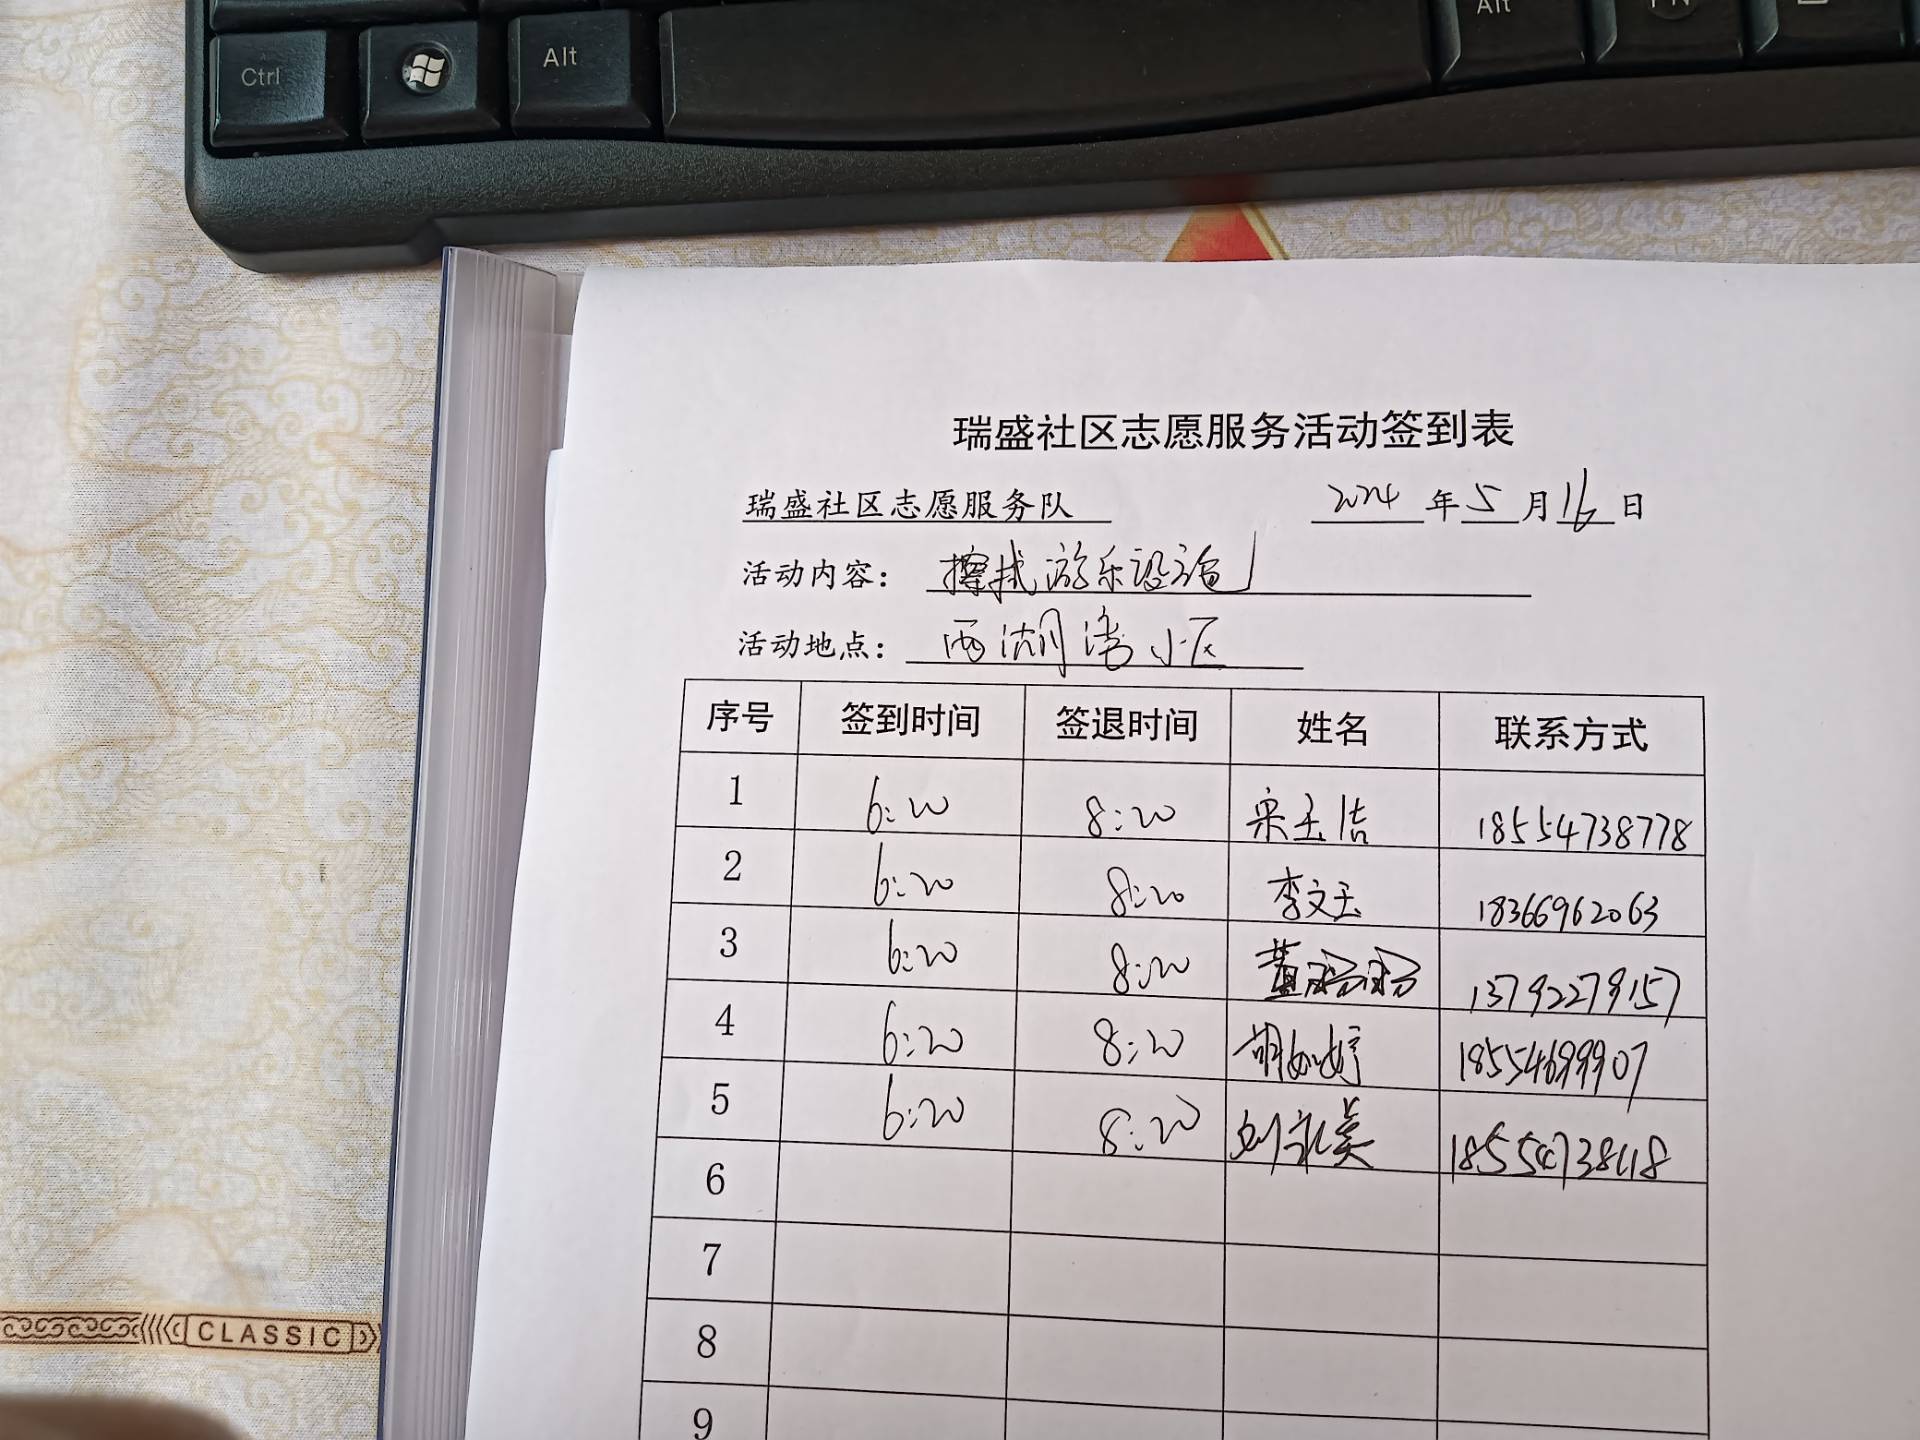 Ctrl Alt Alt FN
瑞盛社区志愿服务活动签到表
瑞盛社区志愿服务队 2024 年 5 月 16 日
活动内容： 擦拭游乐设施
活动地点： 西湖湾小区
序号 签到时间 签退时间 姓名 联系方式
1 6:20 8:20 宋玉洁 18554738778
2 6:20 8:20 李文玉 18366962063
3 6:20 8:20 董 13792279157
4 6:20 8:20 胡如婷 18554699907
5 6:20 8:20 刘永美 18554738118
6
7
8
9
CLASSIC